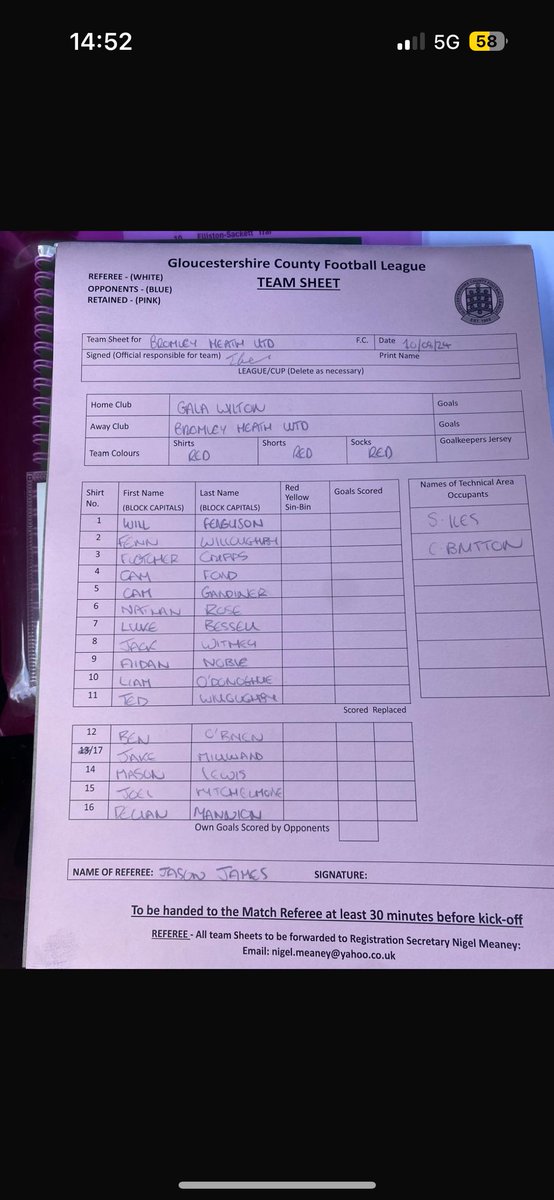 14:52
5G 58
Elliston-Sackett
Gloucestershire County Football League
TEAM SHEET
REFEREE - (WHITE)
OPPONENTS - (BLUE)
RETAINED - (PINK)
Team Sheet for BROMLEY HEATH UTD F.C. Date 10/09/24
Signed (Official responsible for team) Print Name
LEAGUE/CUP (Delete as necessary)
Home Club GALA WILTON Goals
Away Club BROMLEY HEATH UTD Goals
Team Colours Shirts RED Shorts RED Socks RED Goalkeepers Jersey
Shirt No. First Name (BLOCK CAPITALS) Last Name (BLOCK CAPITALS) Red Yellow Sin-Bin Goals Scored
1 WILL FERGUSON
2 FENN WILLOUGHBY
3 FLETCHER CRIPPS
4 CAM FORD
5 CAM GARDINER
6 NATHAN ROSE
7 LUKE BESSELL
8 JACK WITHEY
9 AIDAN NOBLE
10 LIAM O'DONOGHUE
11 TED WILLOUGHBY
Scored Replaced
12 BEN O'BRIEN
13/17 JAKE MILLWARD
14 MASON LEWIS
15 JOEL MITCHELMORE
16 DECLAN MANNION
Own Goals Scored by Opponents
Names of Technical Area Occupants
S. ILES
C. BRITTON
NAME OF REFEREE: JASON JAMES SIGNATURE:
To be handed to the Match Referee at least 30 minutes before kick-off
REFEREE - All team Sheets to be forwarded to Registration Secretary Nigel Meaney:
Email: nigel.meaney@yahoo.co.uk